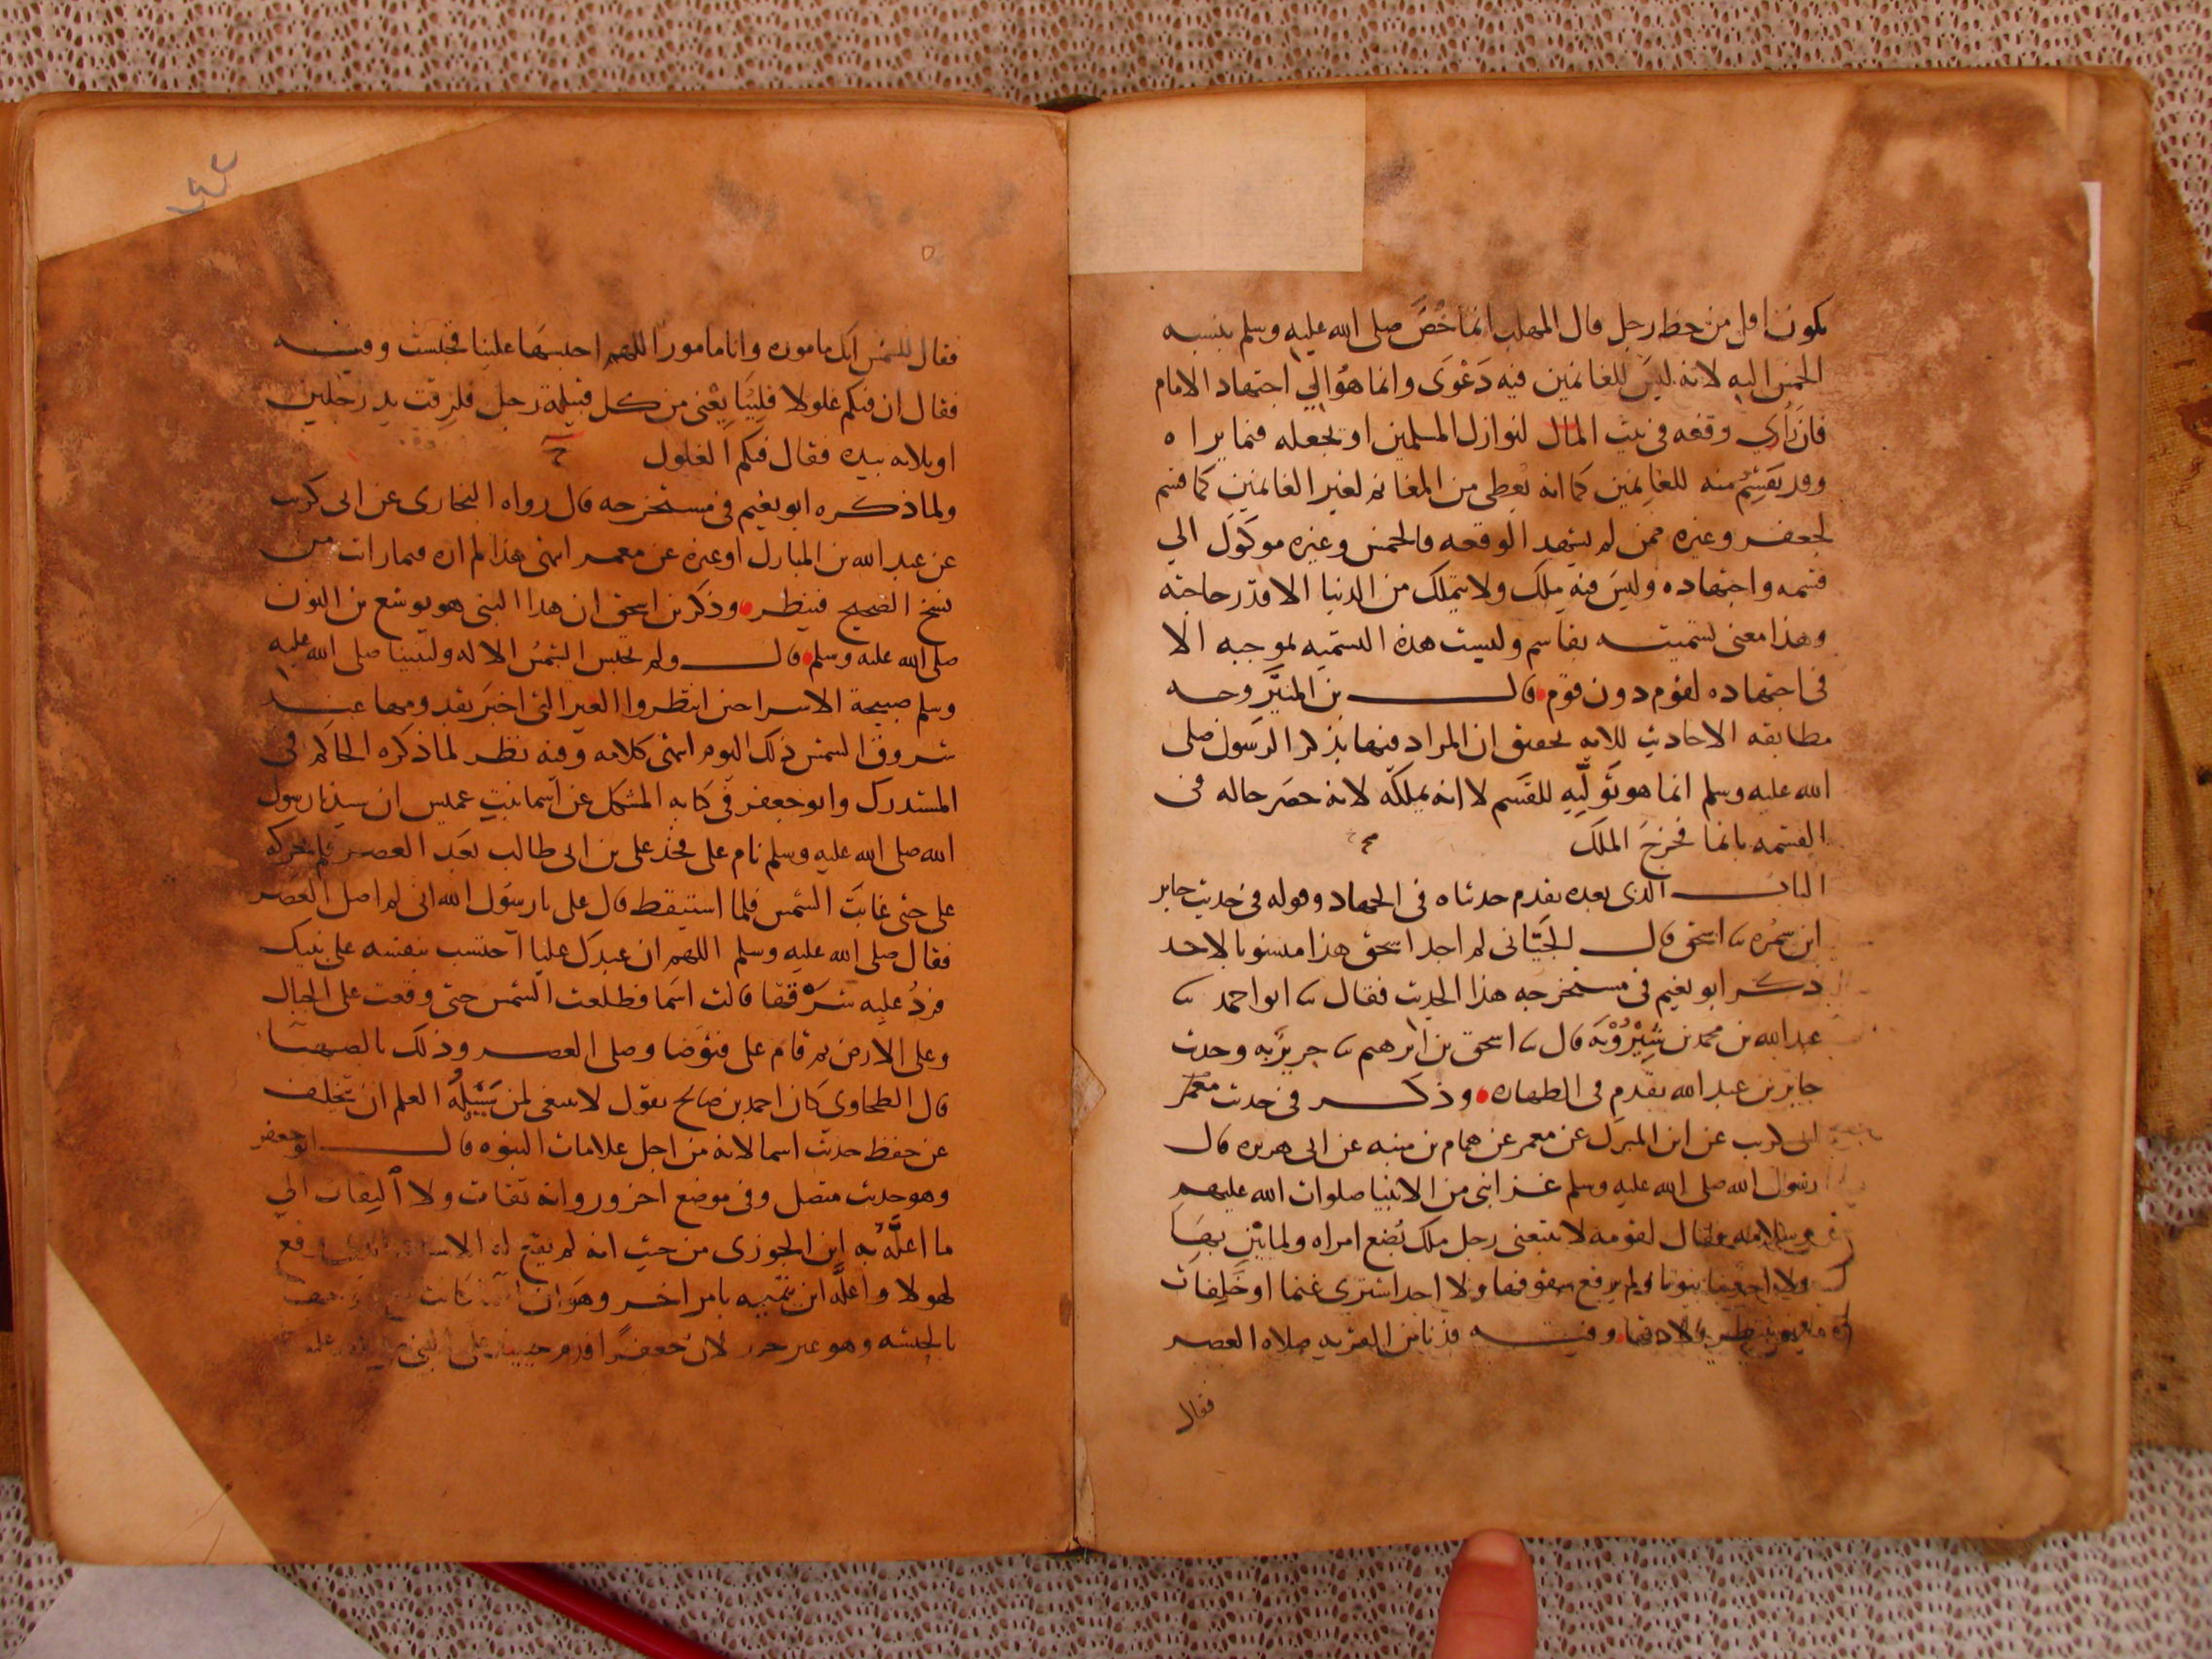 يكون اقل من حظ رجل قال المهلب انما خُصَّ صلى الله عليه وسلم بنسبه
الخمس اليه لانه ليس للغانمين فيه دَعْوَى وانما هُوَ الي اجتهاد الامام
فان رَاي وقفه في بيت المال لنوازل المسلمين او يجعله فيما يراه
وقد يقسِمُ منه للغانمين كما انه يعطى من المغانم لغير الغانمين كما قسم
لجعفر وغيره ممن لم يشهد الوقعه فالخمس وغيره موكول الي
قسمه واجتهاده وليس فيه ملك ولا يتملك من الدنيا الا قدر حاجته
وهذا معنى تسميته بقاسم وليست هذه التسميه بموجبه الا
فى اجتهاده لقوم دون قوم قال بن المنيَّر وجه
مطابقه الاحاديث للايه تحقيق ان المراد فيها بذكر الرسول صلى
الله عليه وسلم انما هو تَولِّيه للقسم لا انه يملكه لانه حصَر حاله فى
القسمه بانما فخرجَ الملك
الباب الذى بعده تقدم حدثناه فى الجهاد وقوله فى حديث جابر
ابن سمُره ثنا اسحق قال الجيّانى لم اجد اسحق هذا منسوبا لاحد
ذكر ابو نعيم فى مستخرجه هذا الحديث فقال ثنا ابو احمد ثنا
عبد الله بن محمد بن شِيْرُوْيَه قال ثنا اسحق بن ابرهيم ثنا جرير به وحديث
جابر بن عبد الله تقدم فى الطهاره وذكر فى حديث معمر
ابى كريب عن ابن المبرك عن معمر عن همام بن منبه عن ابى هريره قال
رسول الله صلى الله عليه وسلم غزا نبى من الانبيا صلوات الله عليهم
وسلامه فقال لقومه لا يتبعنى رجل ملك بُضع امراه ولما يبن بها
ولا احد بنا بيوتا ولم يرفع سقوفها ولا احد اشترى غنما او خَلِفات
وهو ينتظر ولادها وفيه فدنا من القريه صلاه العصر
فقال
١٤٤
فقال للشمس انك ماموره وانا مامور اللهم احبسها علينا فحبست وفيه
فقال ان فيكم غلولا فليبايعنى من كل قبيلة رجل فلزقت يد رجلين
او ثلاثه بيده فقال فيكم الغلول
ولما ذكره ابو نعيم فى مستخرجه قال رواه البخارى عن ابى كريب
عن عبد الله بن المبارك او غيره عن معمر انتهى هذا لم اره فيما رات من
نسخ الصحيح فينظر وذكر بن اسحق ان هذا النبى هو يوشع بن النون
صلى الله عليه وسلم قال ولم تحبس الشمس الا له ولنبينا صلى الله عليه
وسلم صبيحة الاسرا حين انتظروا العير التى اخبر بقدومها عند
شروق الشمس ذلك اليوم انتهى كلامه وفيه نظر لما ذكره الحاكم فى
المستدرك وابو جعفر فى كتابه المشكل عن اسما بنت عميس ان سيدنا رسول
الله صلى الله عليه وسلم نام على فخذ على بن ابى طالب بعد العصر فلم يحركه
على حتى غابت الشمس فلما استيقظ قال على يا رسول الله انى لم اصل العصر
فقال صلى الله عليه وسلم اللهم ان عبدك عليا احتبس بنفسه على نبيك
فردُ عليه شَرْقَها قالت اسما فطلعت الشمس حتى وقعت على الجبال
وعلى الارض ثم قام على فتوضا وصلى العصر وذلك بالصهبا
قال الطحاوي كان احمد بن صالح يقول لا ينبغى لمن سَبِيلُهُ العلم ان يتخلف
عن حفظ حديث اسما لانه من اجل علامات النبوه قال ابو جعفر
وهو حديث متصل وفى موضع اخر ورواته ثقات ولا التفات الي
ما اعلَّهُ به ابن الجوزى من حيث انه لم يقع له الاسناد وقع
لهولا واعلَّه ابن تيميه بامر اخر وهو ان كانت
بالحبشه وهو غير جيد لان جعفرًا قدم على النبى